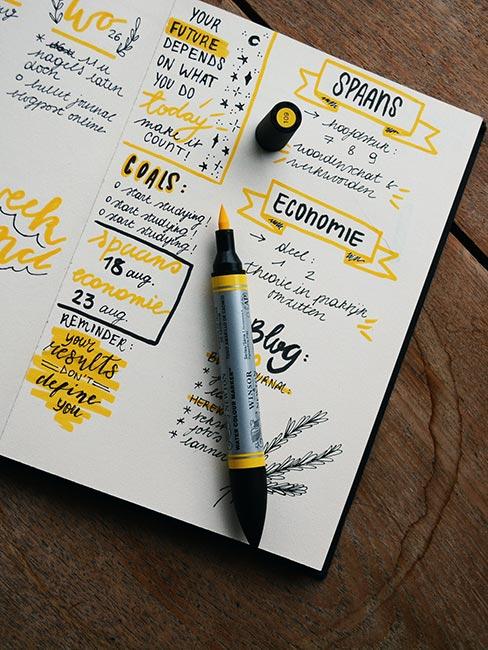 Wo
26
nagels laten
doen
o bullet journal
blogpost online
YOUR
FUTURE
DEPENDS
ON WHAT
YOU DO
today
make it
COUNT!
GOALS:
o start studying!
o start studying!
o start studying!
spaans
18 aug.
economie
23 aug.
REMINDER:
your
results
DON'T
define
you
SPAANS
→ hoofdstuk:
7 8 9
woordenschat &
werkwoorden
ECONOMIE
→ deel:
1 2
theorie in praktijk
omzetten
Blog:
109
WATER COLOUR MARKER
WINSOR